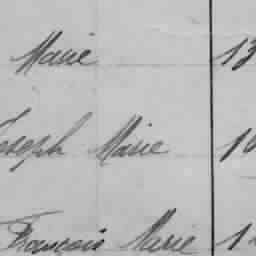 Marie 13
Joseph Marie
François Marie